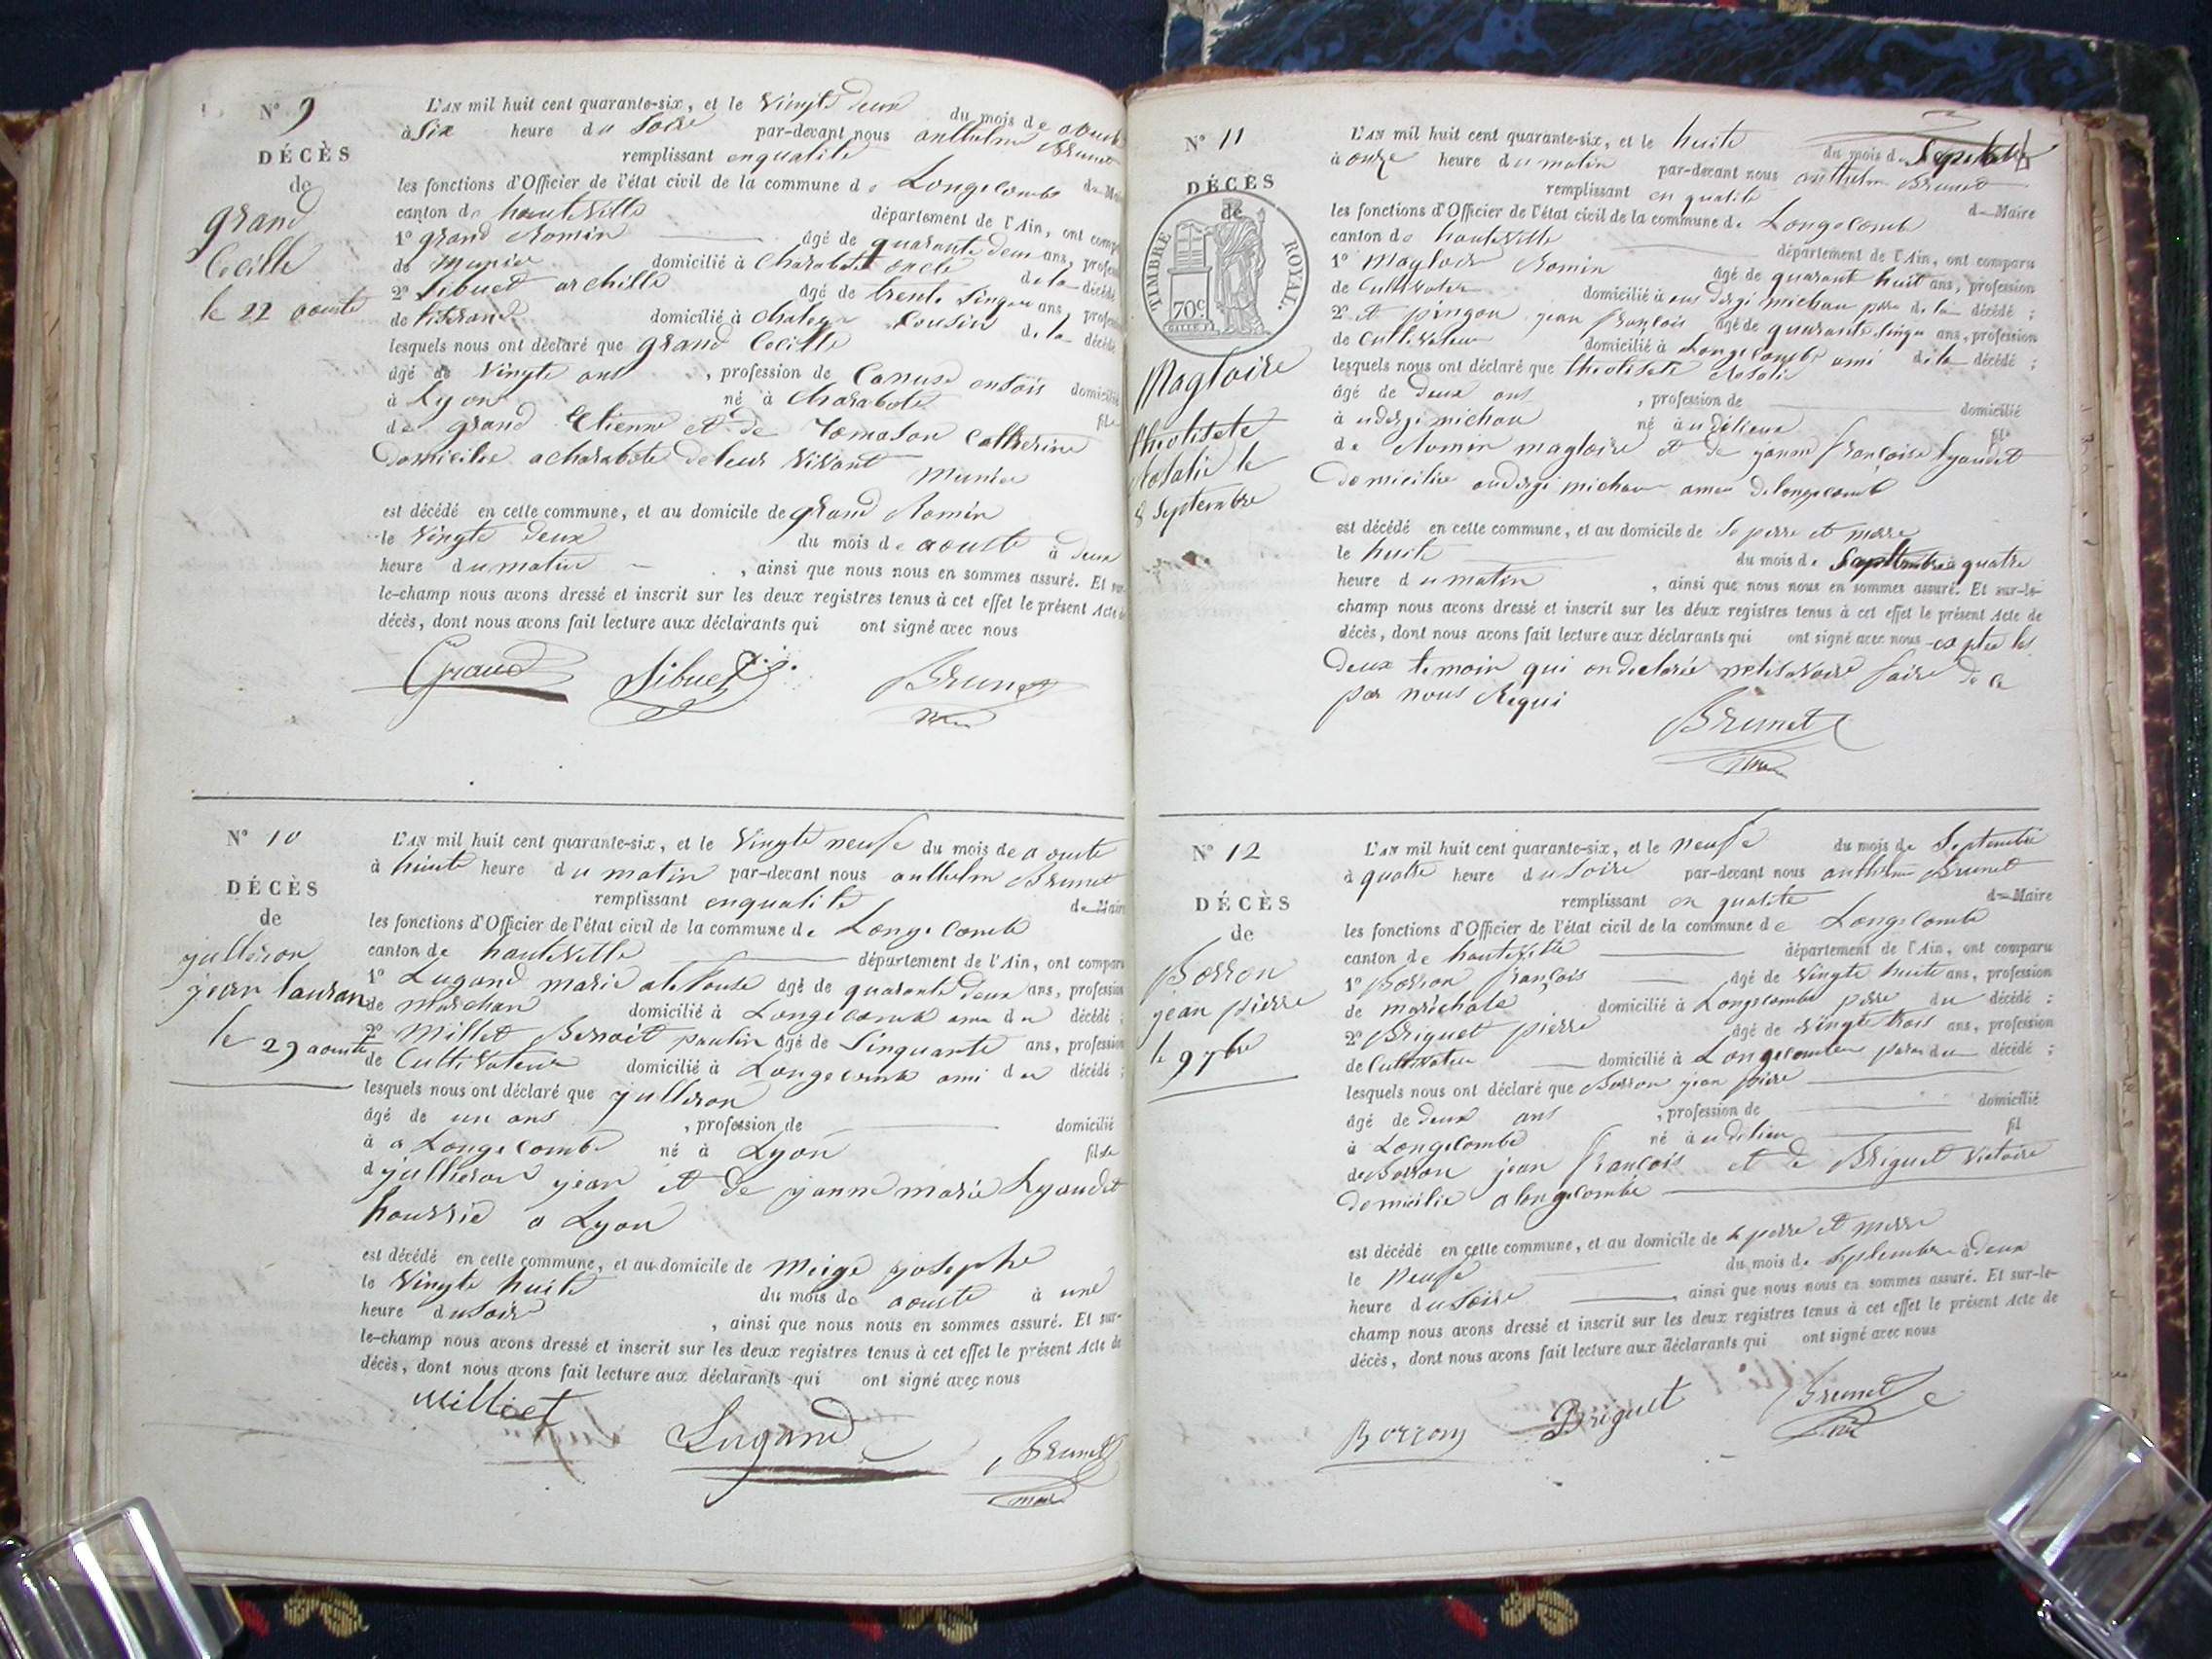 N° 9
DÉCÈS
de
grand
Cecille
le 22 aouste
L'AN mil huit cent quarante-six, et le Vingte deux du mois de aouste
à Six heure du Soire par-devant nous anthelm Brunet
remplissant enqualité de Mai
les fonctions d'Officier de l'état civil de la commune de Longecombe
canton de hauteville département de l'Ain, ont comp
1° grand Romin âgé de quarante deux ans, profes
de Munié domicilié à Charabote oncle de la décédé
2° Sibuet archille âgé de trente Singue ans, profes
de tisserand domicilié à Chaley Cousin de la décédé
lesquels nous ont déclaré que grand Cecille
âgé de Vingte ans , profession de Canuse ensois domicilié
à Lyon né à Charabote fil
de grand Etienne et de tomason Catherine
Domicilie acharabote deleur Vivant
Munier
est décédé en cette commune, et au domicile de grand Romin
le Vingte Deux du mois de aouste à deux
heure du matin , ainsi que nous nous en sommes assuré. Et sur-
le-champ nous avons dressé et inscrit sur les deux registres tenus à cet effet le présent Acte de
décès, dont nous avons fait lecture aux déclarants qui ont signé avec nous
Grand Sibuet Brunet
N° 10
DÉCÈS
de
julleron
jean lauran
le 29 aouste
L'AN mil huit cent quarante-six, et le Vingte neufe du mois de aouste
à huite heure du matin par-devant nous anthelm Brunet
remplissant enqualité de Mair
les fonctions d'Officier de l'état civil de la commune de Longecombe
canton de hauteville département de l'Ain, ont comparu
1° Lugand marie alefonse âgé de quarante deux ans, profession
de marchan domicilié à Longecombe ami du décédé ;
2° Milliet Benoit paulin âgé de Singuante ans, profession
de Cultivateur domicilié à Longecombe ami du décédé ;
lesquels nous ont déclaré que julleron
âgé de un ans , profession de domicilié
à a Longecombe né à Lyon fils de
d julleron jean et de janne marie Lyaudet
hourrié a Lyon
est décédé en cette commune, et au domicile de Meige josephe
le Vingte huite du mois de aouste à une
heure du soir , ainsi que nous nous en sommes assuré. Et sur-
le-champ nous avons dressé et inscrit sur les deux registres tenus à cet effet le présent Acte de
décès, dont nous avons fait lecture aux déclarants qui ont signé avec nous
Milliet Lugand Brunet
maire
N° 11
DÉCÈS
de
TIMBRE ROYAL.
70c
Magloire
theotiste
Rosalie le
8 Septembre
L'AN mil huit cent quarante-six, et le huite du mois de Septembre
à onze heure du matin par-devant nous anthelm Brunet
remplissant en qualité de Maire
les fonctions d'Officier de l'état civil de la commune de Longecombe
canton de hauteville département de l'Ain, ont comparu
1° Magloire Romin âgé de quarant huit ans, profession
de Cultivater domicilié à michau père de la décédé ;
2° et pingon jean françois âgé de quarante Singu ans, profession
de Cultivateur domicilié à Longecombe ami de la décédé ;
lesquels nous ont déclaré que theotiste Rosalie
âgé de Deux ans , profession de domicilié
à michau né à u délieux fil
de Romin magloire et de janne françoise lyaudet
domicilie michau de longecombe
est décédé en cette commune, et au domicile de Se perre et merre
le huite du mois de Septembre à quatre
heure du matin , ainsi que nous nous en sommes assuré. Et sur-le-
champ nous avons dressé et inscrit sur les deux registres tenus à cet effet le présent Acte de
décès, dont nous avons fait lecture aux déclarants qui ont signé avec nous exptee les
Deux temoin qui on declarée netisavoire faire de ce
par nous Requi
Brunet
N° 12
DÉCÈS
de
Borron
jean pierre
le 9 7bre
L'AN mil huit cent quarante-six, et le neufe du mois de Septembre
à quatre heure du Soire par-devant nous anthelm Brunet
remplissant en qualité de Maire
les fonctions d'Officier de l'état civil de la commune de Longecombe
canton de hauteville département de l'Ain, ont comparu
1° Borron françois âgé de Vingte huite ans, profession
de maréchale domicilié à Longecombe perre du décédé ;
2° Briguet pierre âgé de vingte trois ans, profession
de Cultivateur domicilié à Longecombe du décédé ;
lesquels nous ont déclaré que Borron jean pierre
âgé de Deux ans , profession de domicilié
à Longecombe né à udelieu fil
de Borron jean françois et de Briguet Victoire
Domicilie alongecombe
est décédé en cette commune, et au domicile de Se perre et merre
le Neufe du mois de Septembre à deux
heure du Soire , ainsi que nous nous en sommes assuré. Et sur-le-
champ nous avons dressé et inscrit sur les deux registres tenus à cet effet le présent Acte de
décès, dont nous avons fait lecture aux déclarants qui ont signé avec nous
Borron Briguet Brunet